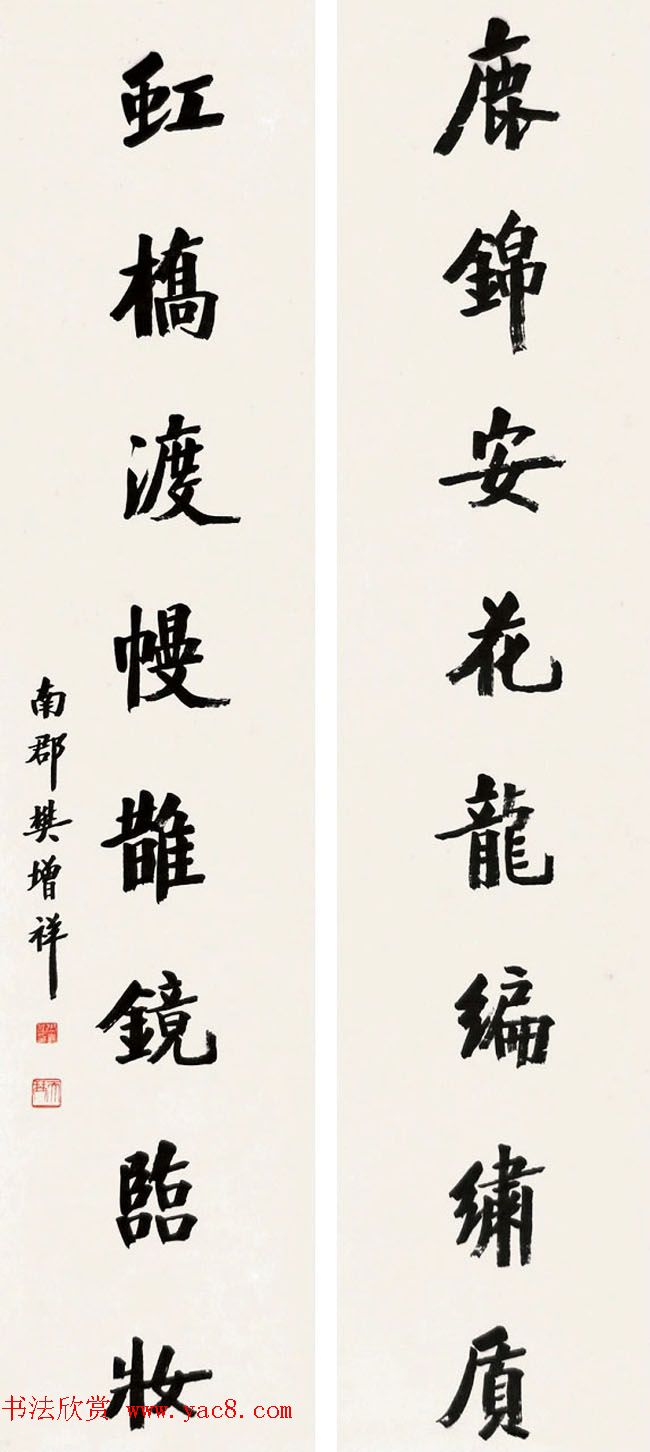 鹿錦安花龍編繡質
虹橋渡幔鵲鏡臨妝
南郡樊增祥
书法欣赏 www.yac8.com